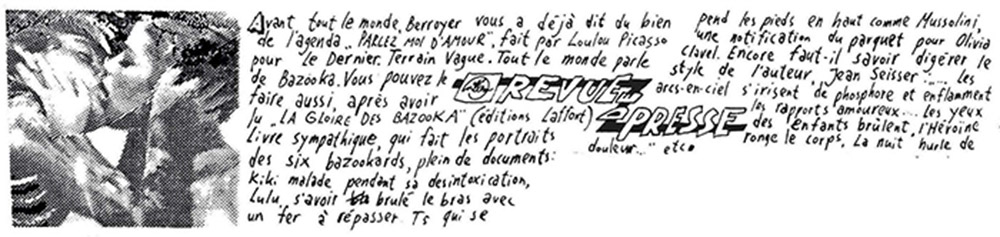 Avant tout le monde, Berroyer vous a déjà dit du bien
de l'agenda "PARLEZ MOI D'AMOUR", fait par Loulou Picasso
pour "Le Dernier Terrain Vague. Tout le monde parle
de Bazooka. Vous pouvez le
faire aussi, après avoir
lu "LA GLOIRE DES BAZOOKA" (éditions Laffort)
Livre sympathique, qui fait les portraits
des six bazookards, plein de documents:
Kiki malade pendant sa desintoxication,
Lulu s'avoir brulé le bras avec
un fer à répasser. Ts qui se
REVUE
PRESSE
pend les pieds en haut comme Mussolini,
une notification du parquet pour Olivia
Clavel. Encore faut-il savoir digérer le
style de l'auteur, Jean Seisser "... les
arcs-en-ciel s'irisent de phosphore et enflamment
les rapports amoureux... Les yeux
des enfants brûlent, l'Héroïne
ronge le corps, La nuit hurle de
douleur..." etc.